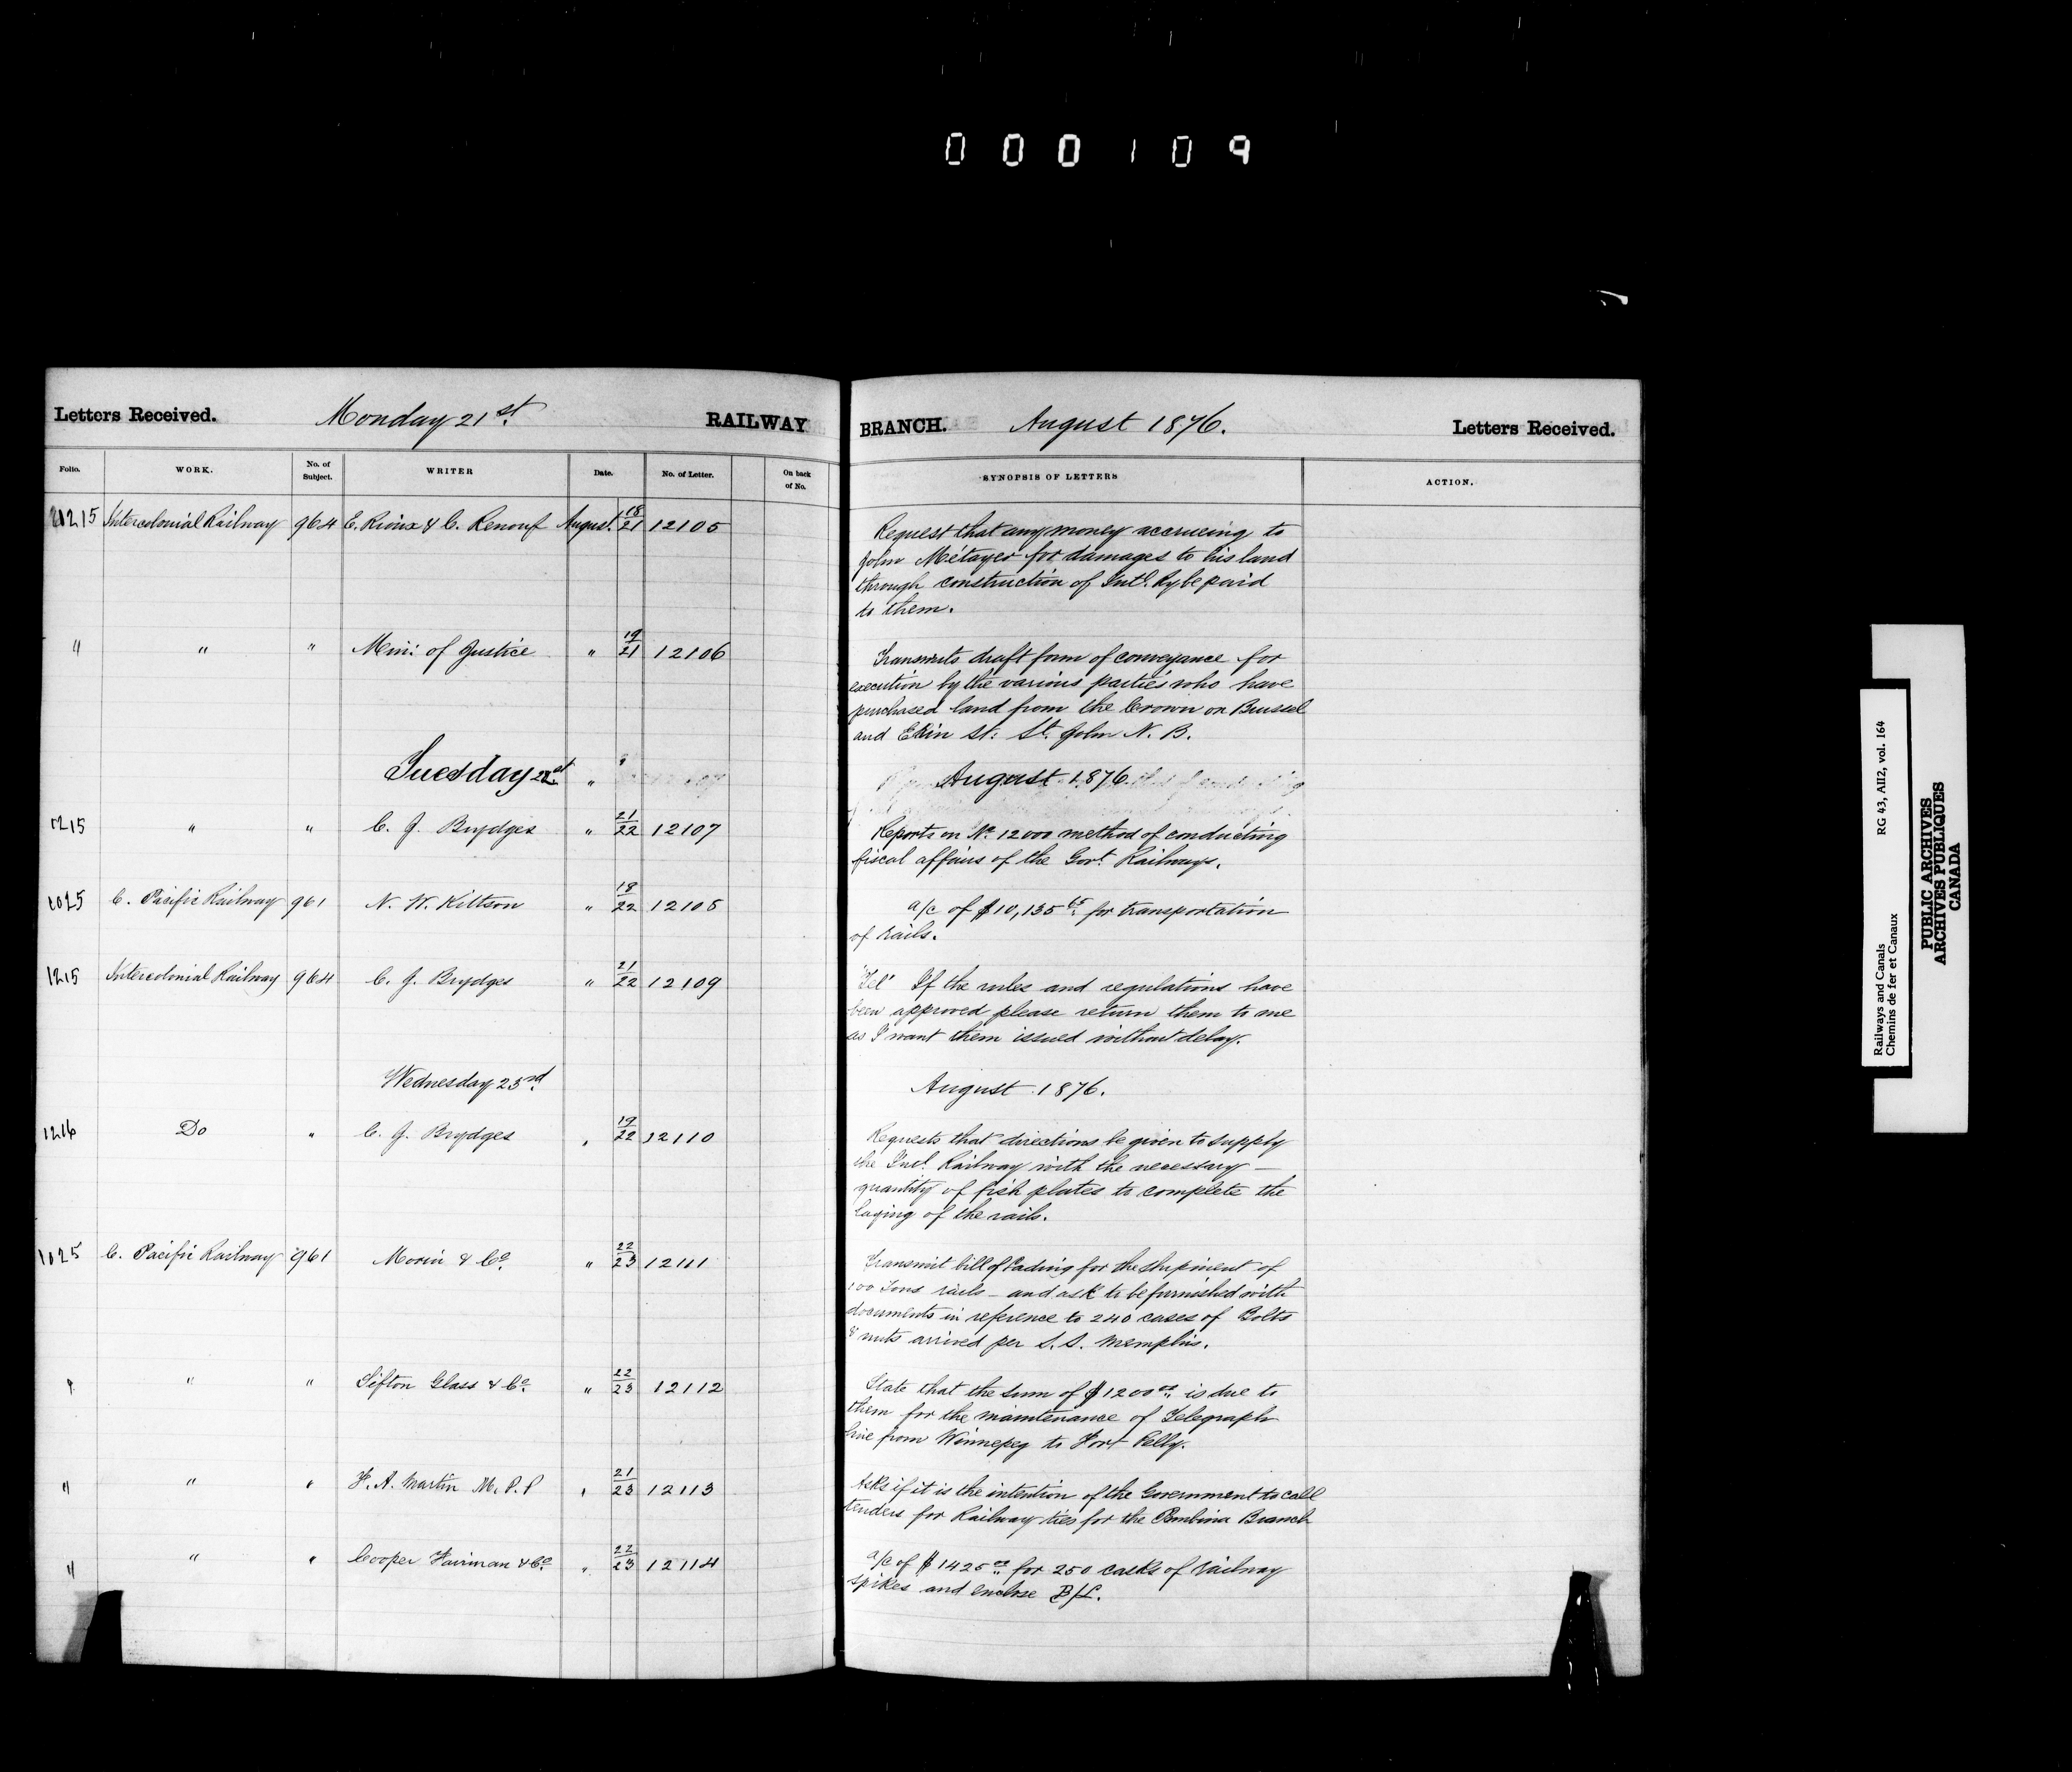 000109
Letters Received. Monday 21st. RAILWAY BRANCH. August 1876. Letters Received.
Folio. WORK. No. of Subject. WRITER Date. No. of Letter. On back of No. SYNOPSIS OF LETTERS ACTION.
1215 Intercolonial Railway 964 E. Rioux & C. Renouf August 18/21 12105
Request that any money accrueing to
John Métayer for damages to his land
through construction of Intl. Ry be paid
to them.
" " " Min: of Justice " 19/21 12106
Transmits draft form of conveyance for
execution by the various parties who have
purchased land from the Crown on Brussel
and Erin St: St. John N. B.
Tuesday 22 " August 1876.
1215 " " C. J. Brydges " 21/22 12107
Reports on No. 12000 method of conducting
fiscal affairs of the Govt. Railways.
1025 C. Pacific Railway 961 N. W. Kittson " 18/22 12108
a/c of $10,135 65 for transportation
of rails.
1215 Intercolonial Railway 964 C. J. Brydges " 21/22 12109
"Tel" If the rules and regulations have
been approved please return them to me
as I want them issued without delay.
Wednesday 23rd August 1876.
1216 Do " C. J. Brydges " 19/22 12110
Requests that directions be given to supply
the Intl. Railway with the necessary —
quantity of fish plates to complete the
laying of the rails.
1025 C. Pacific Railway 961 Morin & Co. " 22/23 12111
Transmit bill of Lading for the shipment of
100 Tons rails — and ask to be furnished with
documents in reference to 240 cases of Bolts
& nuts arrived per S. S. Memphis.
" " " Sifton Glass & Co. " 22/23 12112
State that the sum of $1200 00 is due to
them for the maintenance of Telegraph
line from Winnepeg to Fort Pelly.
" " " F. A. Martin M. P. P " 21/23 12113
Asks if it is the intention of the Government to call
tenders for Railway ties for the Pembina Branch
" " " Cooper Fairman & Co. " 22/23 12114
a/c of $1425 00 for 250 casks of railway
spikes and enclose B/L.
Railways and Canals RG 43, AII2, vol. 164
Chemins de fer et Canaux
PUBLIC ARCHIVES
ARCHIVES PUBLIQUES
CANADA